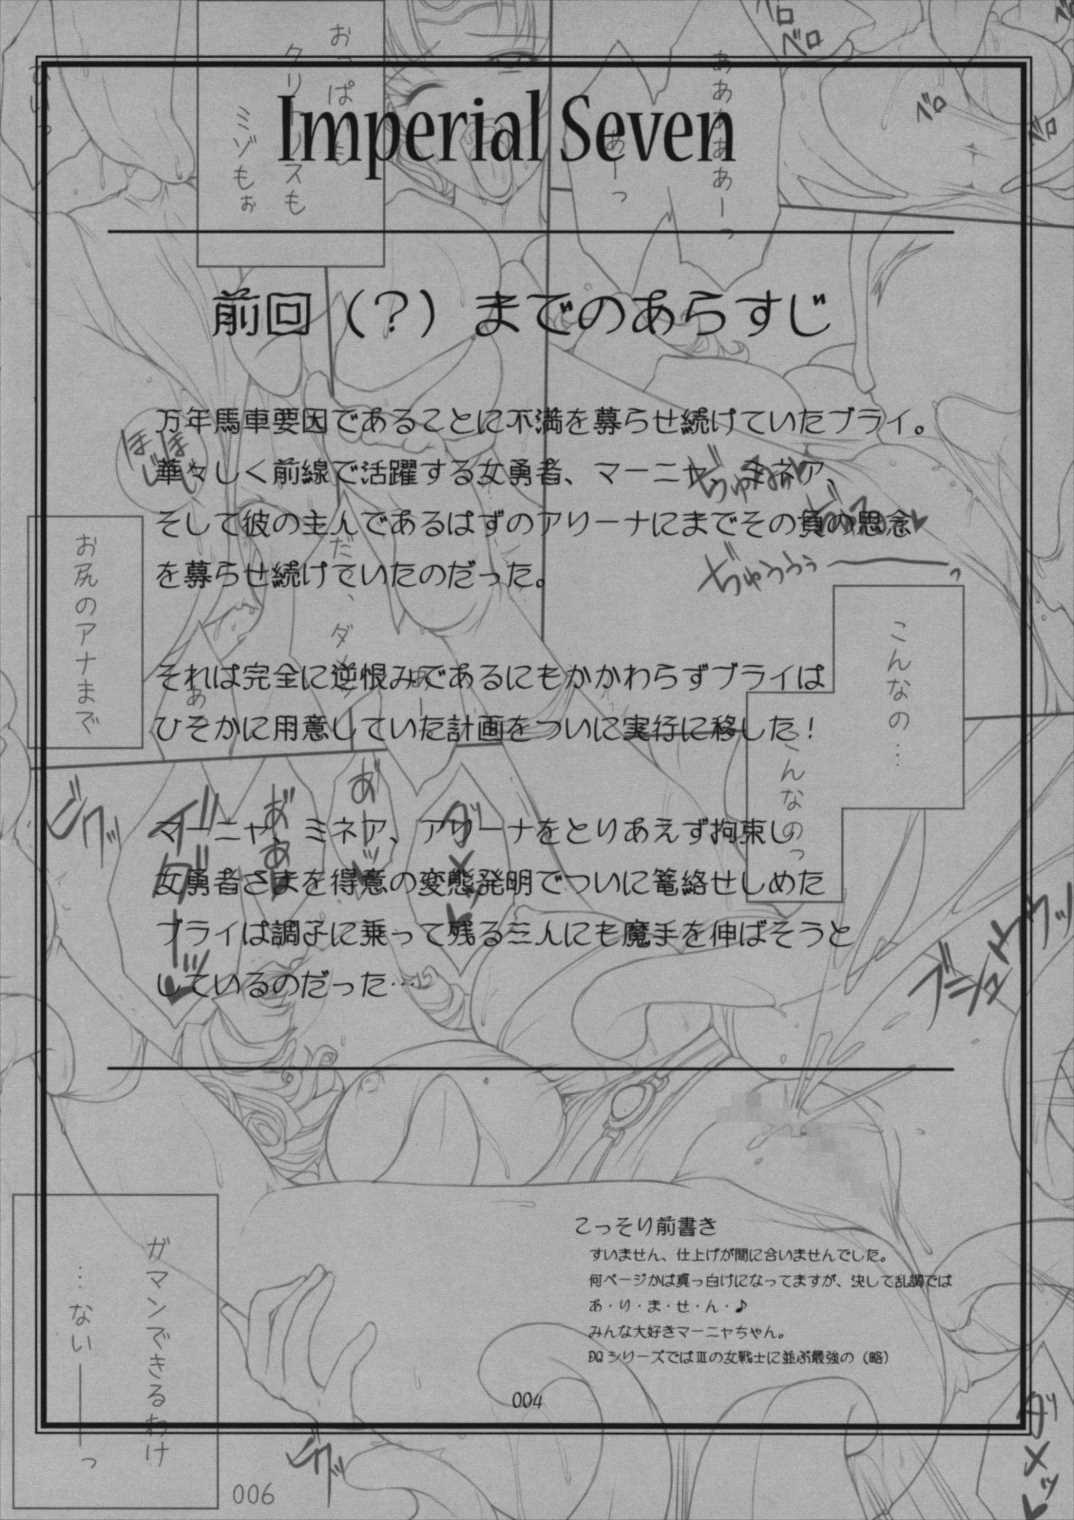 Imperial Seven
前回（？）までのあらすじ
万年馬車要因であることに不満を募らせ続けていたブライ。
華々しく前線で活躍する女勇者、マーニャ、ミネア、
そして彼の主人であるはずのアリーナにまでその負の思念
を募らせ続けていたのだった。
それは完全に逆恨みであるにもかかわらずブライは
ひそかに用意していた計画をついに実行に移した！
マーニャ、ミネア、アリーナをとりあえず拘束し
女勇者さまを得意の変態発明でついに篭絡せしめた
ブライは調子に乗って残る三人にも魔手を伸ばそうと
しているのだった…
こっそり前書き
すいません、仕上げが間に合いませんでした。
何ページかは真っ白けになってますが、決して乱調では
あ・り・ま・せ・ん・♪
みんな大好きマーニャちゃん。
DQシリーズではⅢの女戦士に並ぶ最強の（略）
004
こんなの…
こんなのっ
お尻のアナまで
ガマンできるわけ
…ないーーっ
006